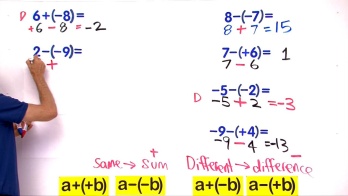 D 6+(-8)=
+6 - 8 = -2
2-(-9)=
+
8-(-7)=
8 + 7 = 15
7-(+6)= 1
7 - 6
D -5-(-2)=
-5 + 2 = -3
-9-(+4)=
-9 - 4 = -13
+ −
Same → Sum Different → difference
a+(+b) a-(-b) a+(-b) a-(+b)